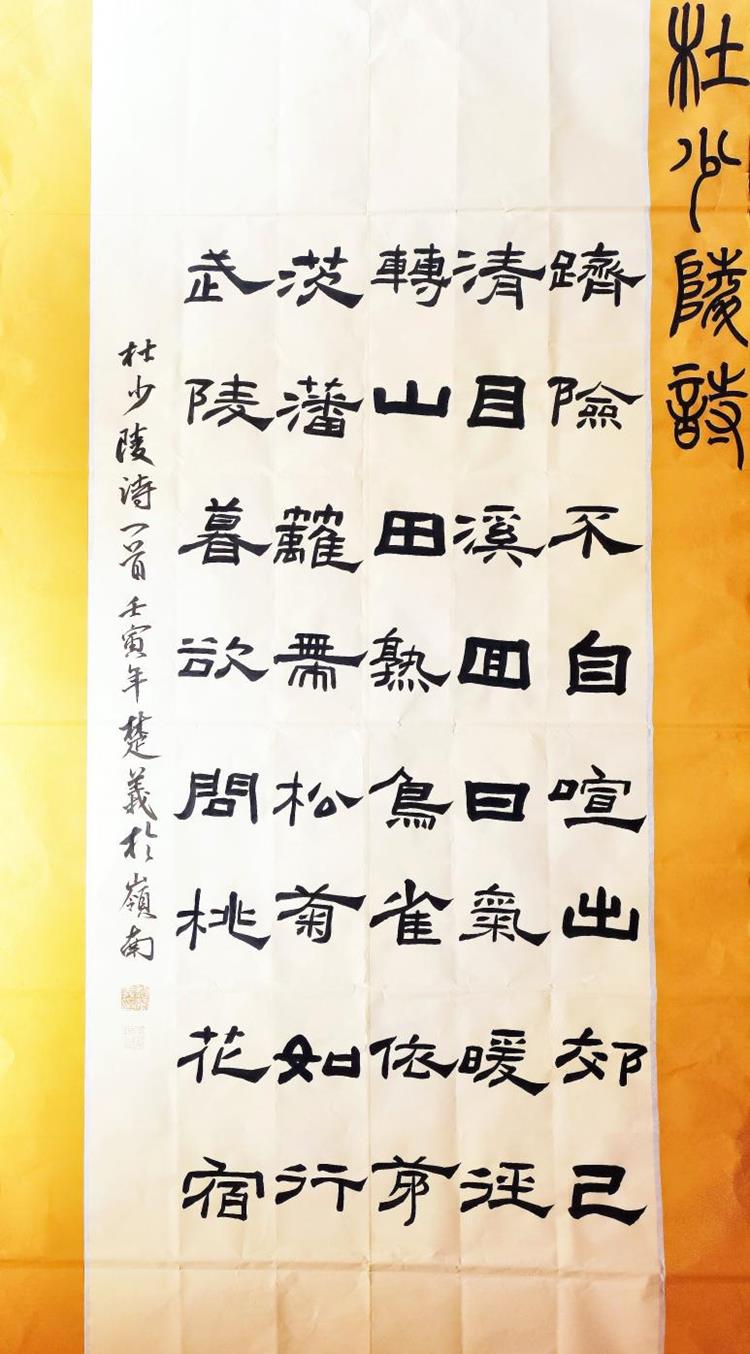 杜少陵詩
躋險不自喧出郊已
清目溪回日氣暖徑
轉山田熟鳥雀依茅
茨藩籬帶松菊如行
武陵暮欲問桃花宿
杜少陵詩一首壬寅年楚義於嶺南